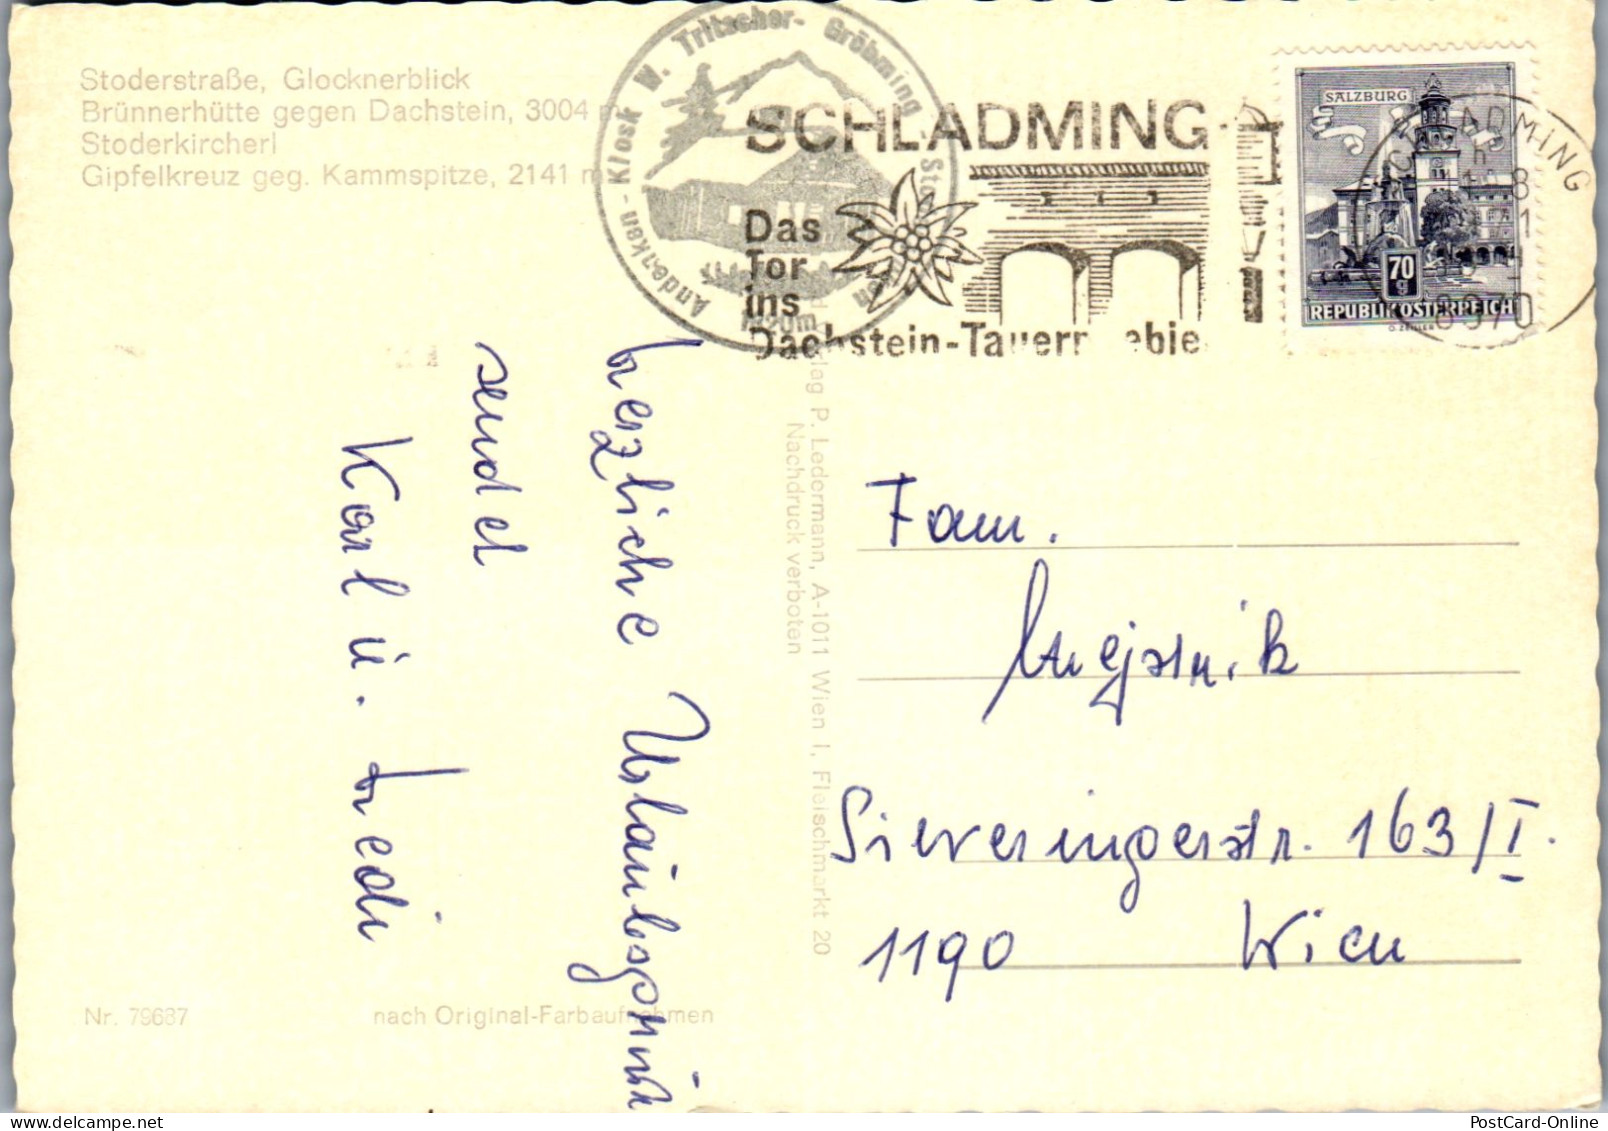 Stoderstraße, Glocknerblick
Brünnerhütte gegen Dachstein, 3004 m
Stoderkircherl
Gipfelkreuz geg. Kammspitze, 2141 m
Andenken-Kiosk W. Tritscher- Gröbming
SCHLADMING
Das
Tor
ins
Dachstein-Tauern
SALZBURG
70
g
REPUBLIK ÖSTERREICH
O. ZEILER
SCHLADMING
8970
herzliche Urlaubsgrüße
sendet
Karl u.
P. Ledermann, A-1011 Wien I, Fleischmarkt 20
Nachdruck verboten
Fam.
Sieveringerstr. 163/I.
1190 Wien
Nr. 79687
nach Original-Farbaufnahmen
PostCard-Online